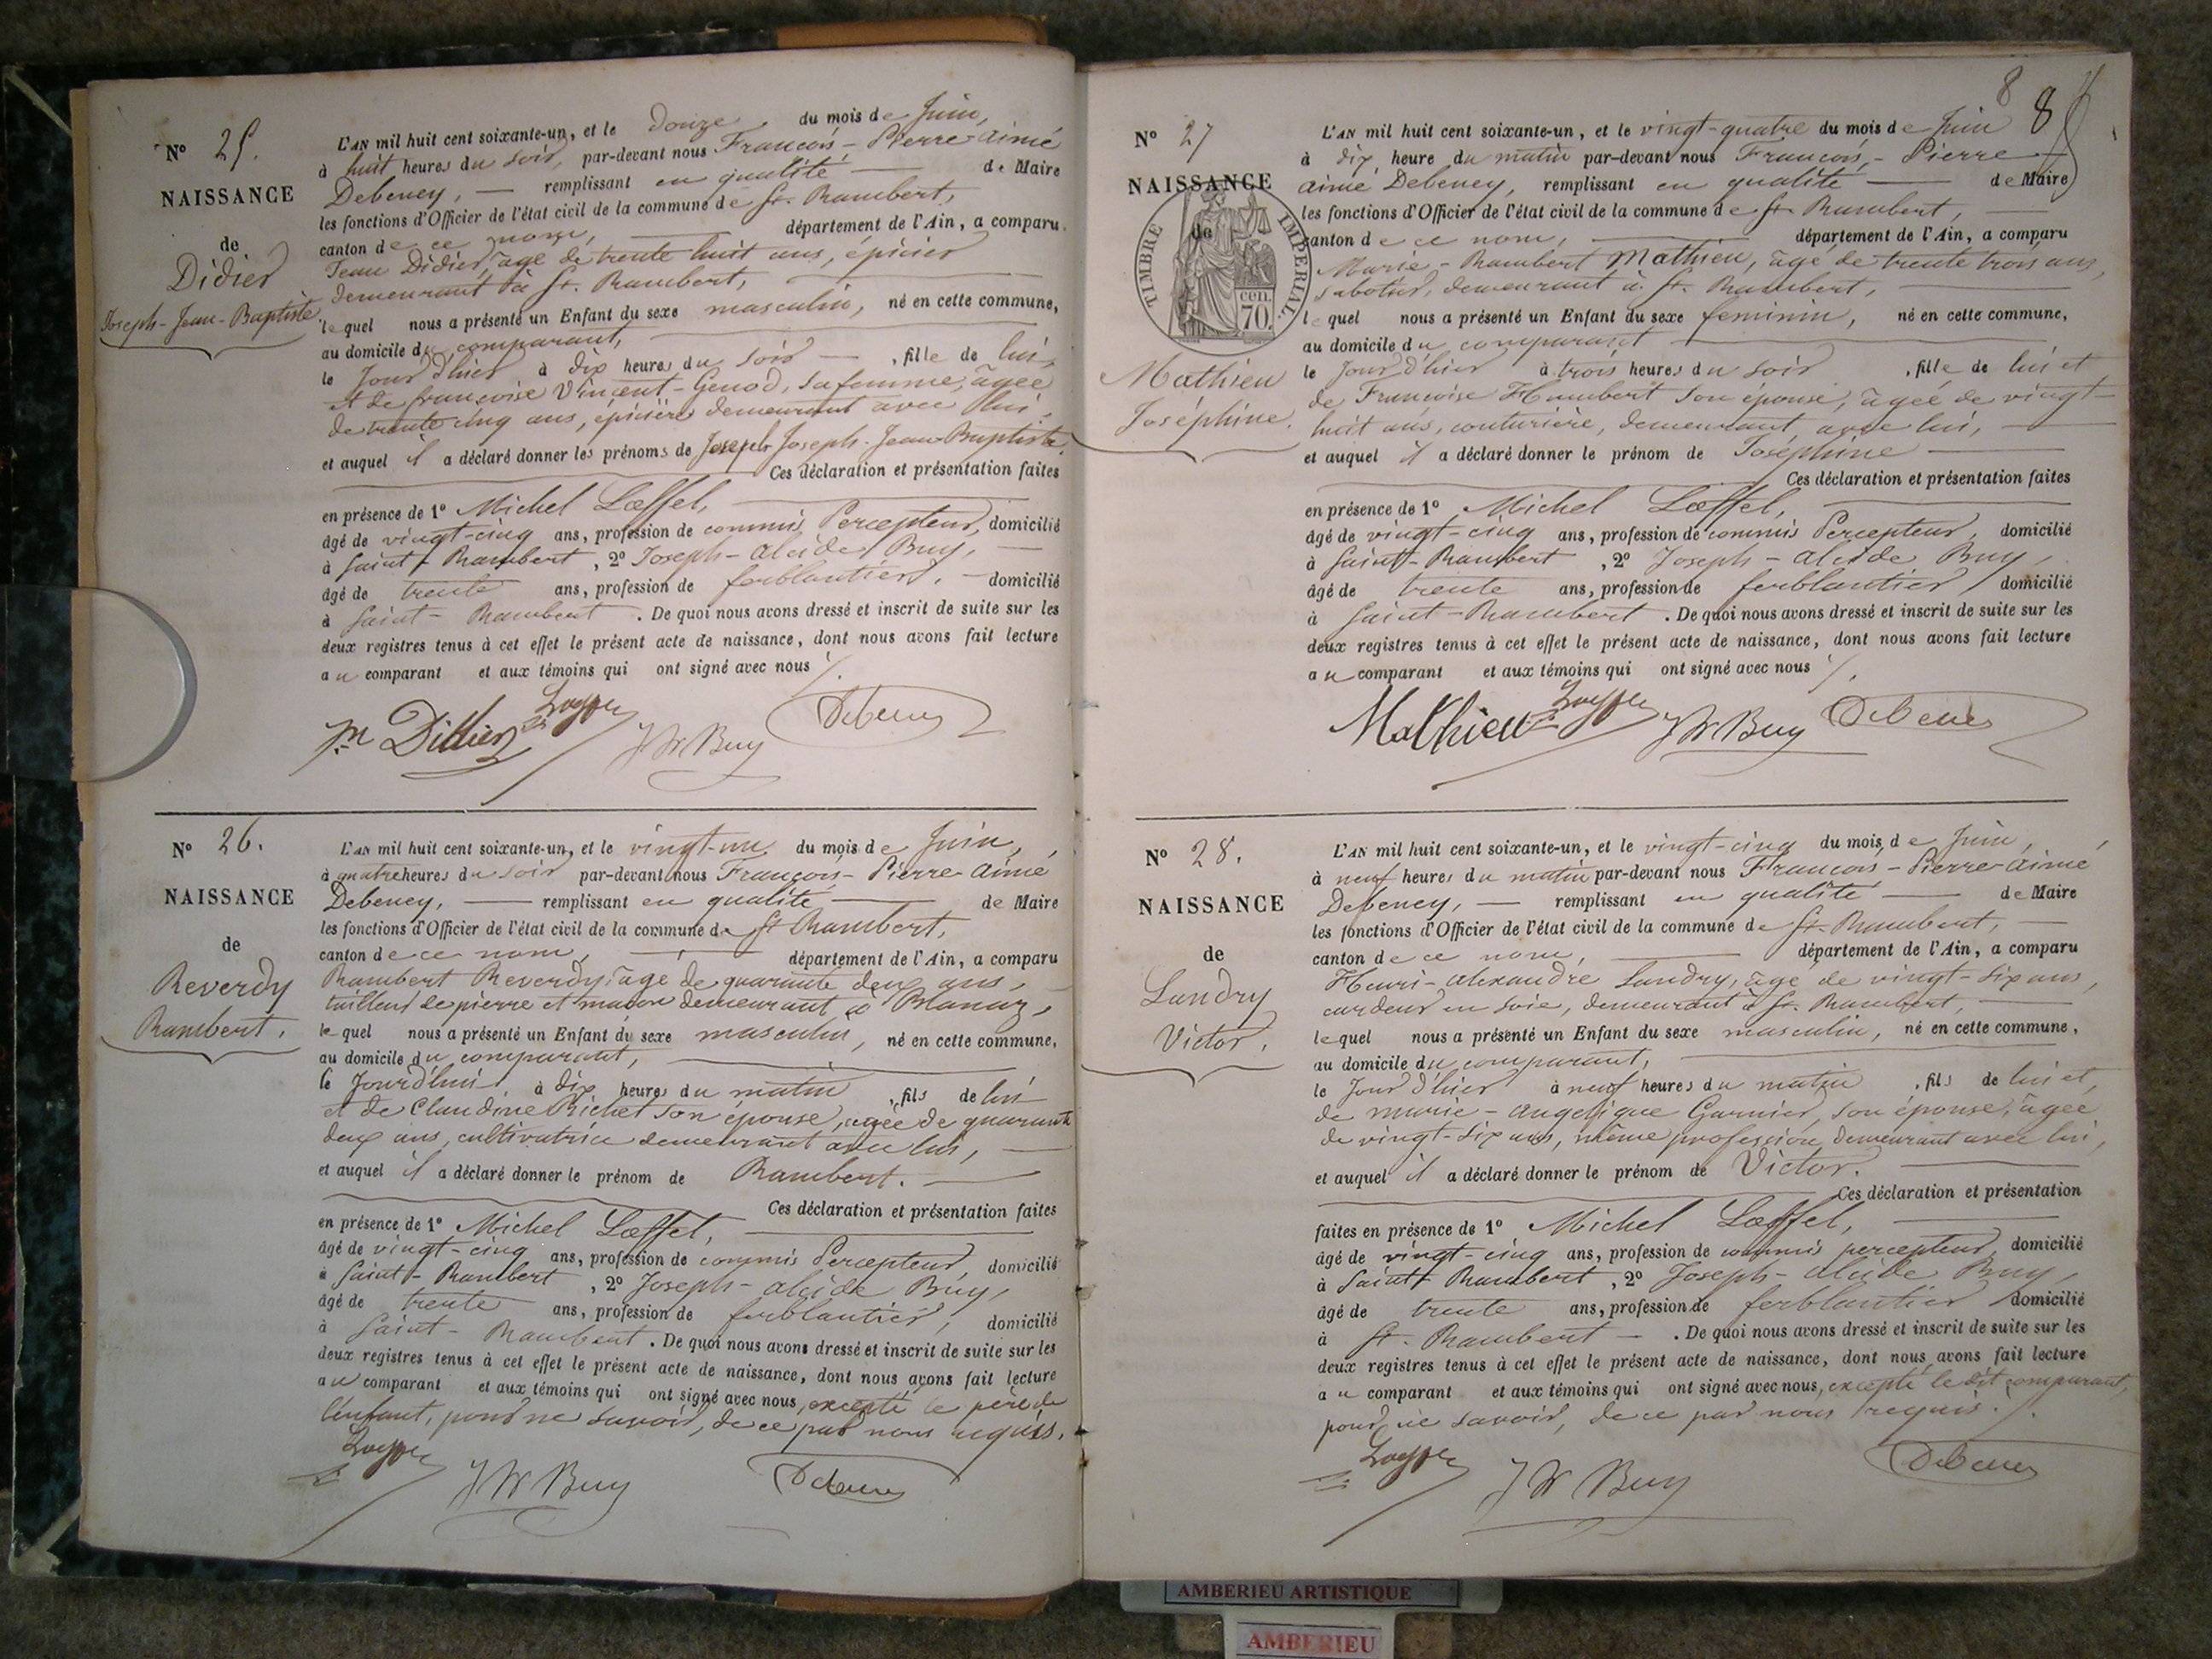 N° 25.
NAISSANCE
de
Didier
Joseph-Jean-Baptiste
L'AN mil huit cent soixante-un, et le douze du mois de Juin,
à huit heures du soir, par-devant nous François-Pierre-Aimé
Debeney, remplissant en qualité de Maire
les fonctions d'Officier de l'état civil de la commune de St. Rambert,
canton de ce nom, département de l'Ain, a comparu
Jean Didier, âgé de trente huit ans, épicier
demeurant à St. Rambert,
lequel nous a présenté un Enfant du sexe masculin, né en cette commune,
au domicile du comparant,
le Jour d'hier à dix heures du soir, fille de lui,
et de françoise Vincent-Genod, sa femme, âgée
de trente cinq ans, épicière demeurant avec lui.
et auquel il a déclaré donner les prénoms de Joseph Joseph-Jean-Baptiste
Ces déclaration et présentation faites
en présence de 1° Michel Lœffel,
âgé de vingt-cinq ans, profession de commis Percepteur, domicilié
à Saint-Rambert, 2° Joseph-alcide Buy,
âgé de trente ans, profession de ferblantier, domicilié
à Saint-Rambert. De quoi nous avons dressé et inscrit de suite sur les
deux registres tenus à cet effet le présent acte de naissance, dont nous avons fait lecture
au comparant et aux témoins qui ont signé avec nous
Didier
Buy
Debeney
N° 26.
NAISSANCE
de
Reverdy
Rambert.
L'AN mil huit cent soixante-un, et le vingt-un du mois de Juin,
à quatre heures du soir par-devant nous François-Pierre-Aimé
Debeney, remplissant en qualité de Maire
les fonctions d'Officier de l'état civil de la commune de St Rambert,
canton de ce nom, département de l'Ain, a comparu
Rambert Reverdy, âgé de quarante deux ans,
tailleur de pierre et maçon demeurant à Blanaz,
lequel nous a présenté un Enfant du sexe masculin, né en cette commune,
au domicile du comparant,
le Jourd'hui à dix heures du matin, fils de lui
et de Claudine Richet son épouse, agée de quarante
deux ans, cultivatrice demeurant avec lui,
et auquel il a déclaré donner le prénom de Rambert.
Ces déclaration et présentation faites
en présence de 1° Michel Lœffel,
âgé de vingt-cinq ans, profession de commis Percepteur, domicilié
à Saint-Rambert, 2° Joseph-alcide Buy,
âgé de trente ans, profession de ferblantier, domicilié
à Saint-Rambert. De quoi nous avons dressé et inscrit de suite sur les
deux registres tenus à cet effet le présent acte de naissance, dont nous avons fait lecture
au comparant et aux témoins qui ont signé avec nous, excepté le père de
l'enfant, pour ne savoir, de ce par nous requis.
Buy
Debeney
8 8
N° 27
NAISSANCE
de
TIMBRE IMPERIAL
70 cen.
Mathieu
Joséphine.
L'AN mil huit cent soixante-un, et le vingt-quatre du mois de Juin
à dix heure du matin par-devant nous François-Pierre
Aimé Debeney, remplissant en qualité de Maire
les fonctions d'Officier de l'état civil de la commune de St Rambert,
canton de ce nom, département de l'Ain, a comparu
Marie-Rambert Mathieu, âgé de trente trois ans,
sabotier, demeurant à St. Rambert,
lequel nous a présenté un Enfant du sexe feminin, né en cette commune,
au domicile du comparant
le Jour d'hier à trois heures du soir, fille de lui et
de Françoise Humbert son épouse, âgée de vingt-
huit ans, couturière, demeurant avec lui,
et auquel il a déclaré donner le prénom de Joséphine
Ces déclaration et présentation faites
en présence de 1° Michel Lœffel,
âgé de vingt-cinq ans, profession de commis Percepteur, domicilié
à Saint-Rambert, 2° Joseph-alcide Buy,
âgé de trente ans, profession de ferblantier, domicilié
à Saint-Rambert. De quoi nous avons dressé et inscrit de suite sur les
deux registres tenus à cet effet le présent acte de naissance, dont nous avons fait lecture
au comparant et aux témoins qui ont signé avec nous
Mathieu
Buy
Debeney
N° 28.
NAISSANCE
de
Landry
Victor.
L'AN mil huit cent soixante-un, et le vingt-cinq du mois de Juin,
à neuf heures du matin par-devant nous François-Pierre-Aimé
Debeney, remplissant en qualité de Maire
les fonctions d'Officier de l'état civil de la commune de St. Rambert,
canton de ce nom, département de l'Ain, a comparu
Henri-alexandre Landry, âgé de vingt-six ans,
cardeur en soie, demeurant à St. Rambert,
lequel nous a présenté un Enfant du sexe masculin, né en cette commune,
au domicile du comparant,
le Jour d'hier à neuf heures du matin, fils de lui et
de marie-angelique Garnier, son épouse, âgée
de vingt-six ans, même profession, demeurant avec lui,
et auquel il a déclaré donner le prénom de Victor.
Ces déclaration et présentation
faites en présence de 1° Michel Lœffel,
âgé de vingt-cinq ans, profession de commis percepteur, domicilié
à Saint Rambert, 2° Joseph-alcide Buy,
âgé de trente ans, profession de ferblantier domicilié
à St. Rambert. De quoi nous avons dressé et inscrit de suite sur les
deux registres tenus à cet effet le présent acte de naissance, dont nous avons fait lecture
au comparant et aux témoins qui ont signé avec nous, excepté le dit comparant,
pour ne savoir, de ce par nous requis.
Buy
Debeney
AMBERIEU ARTISTIQUE
AMBERIEU